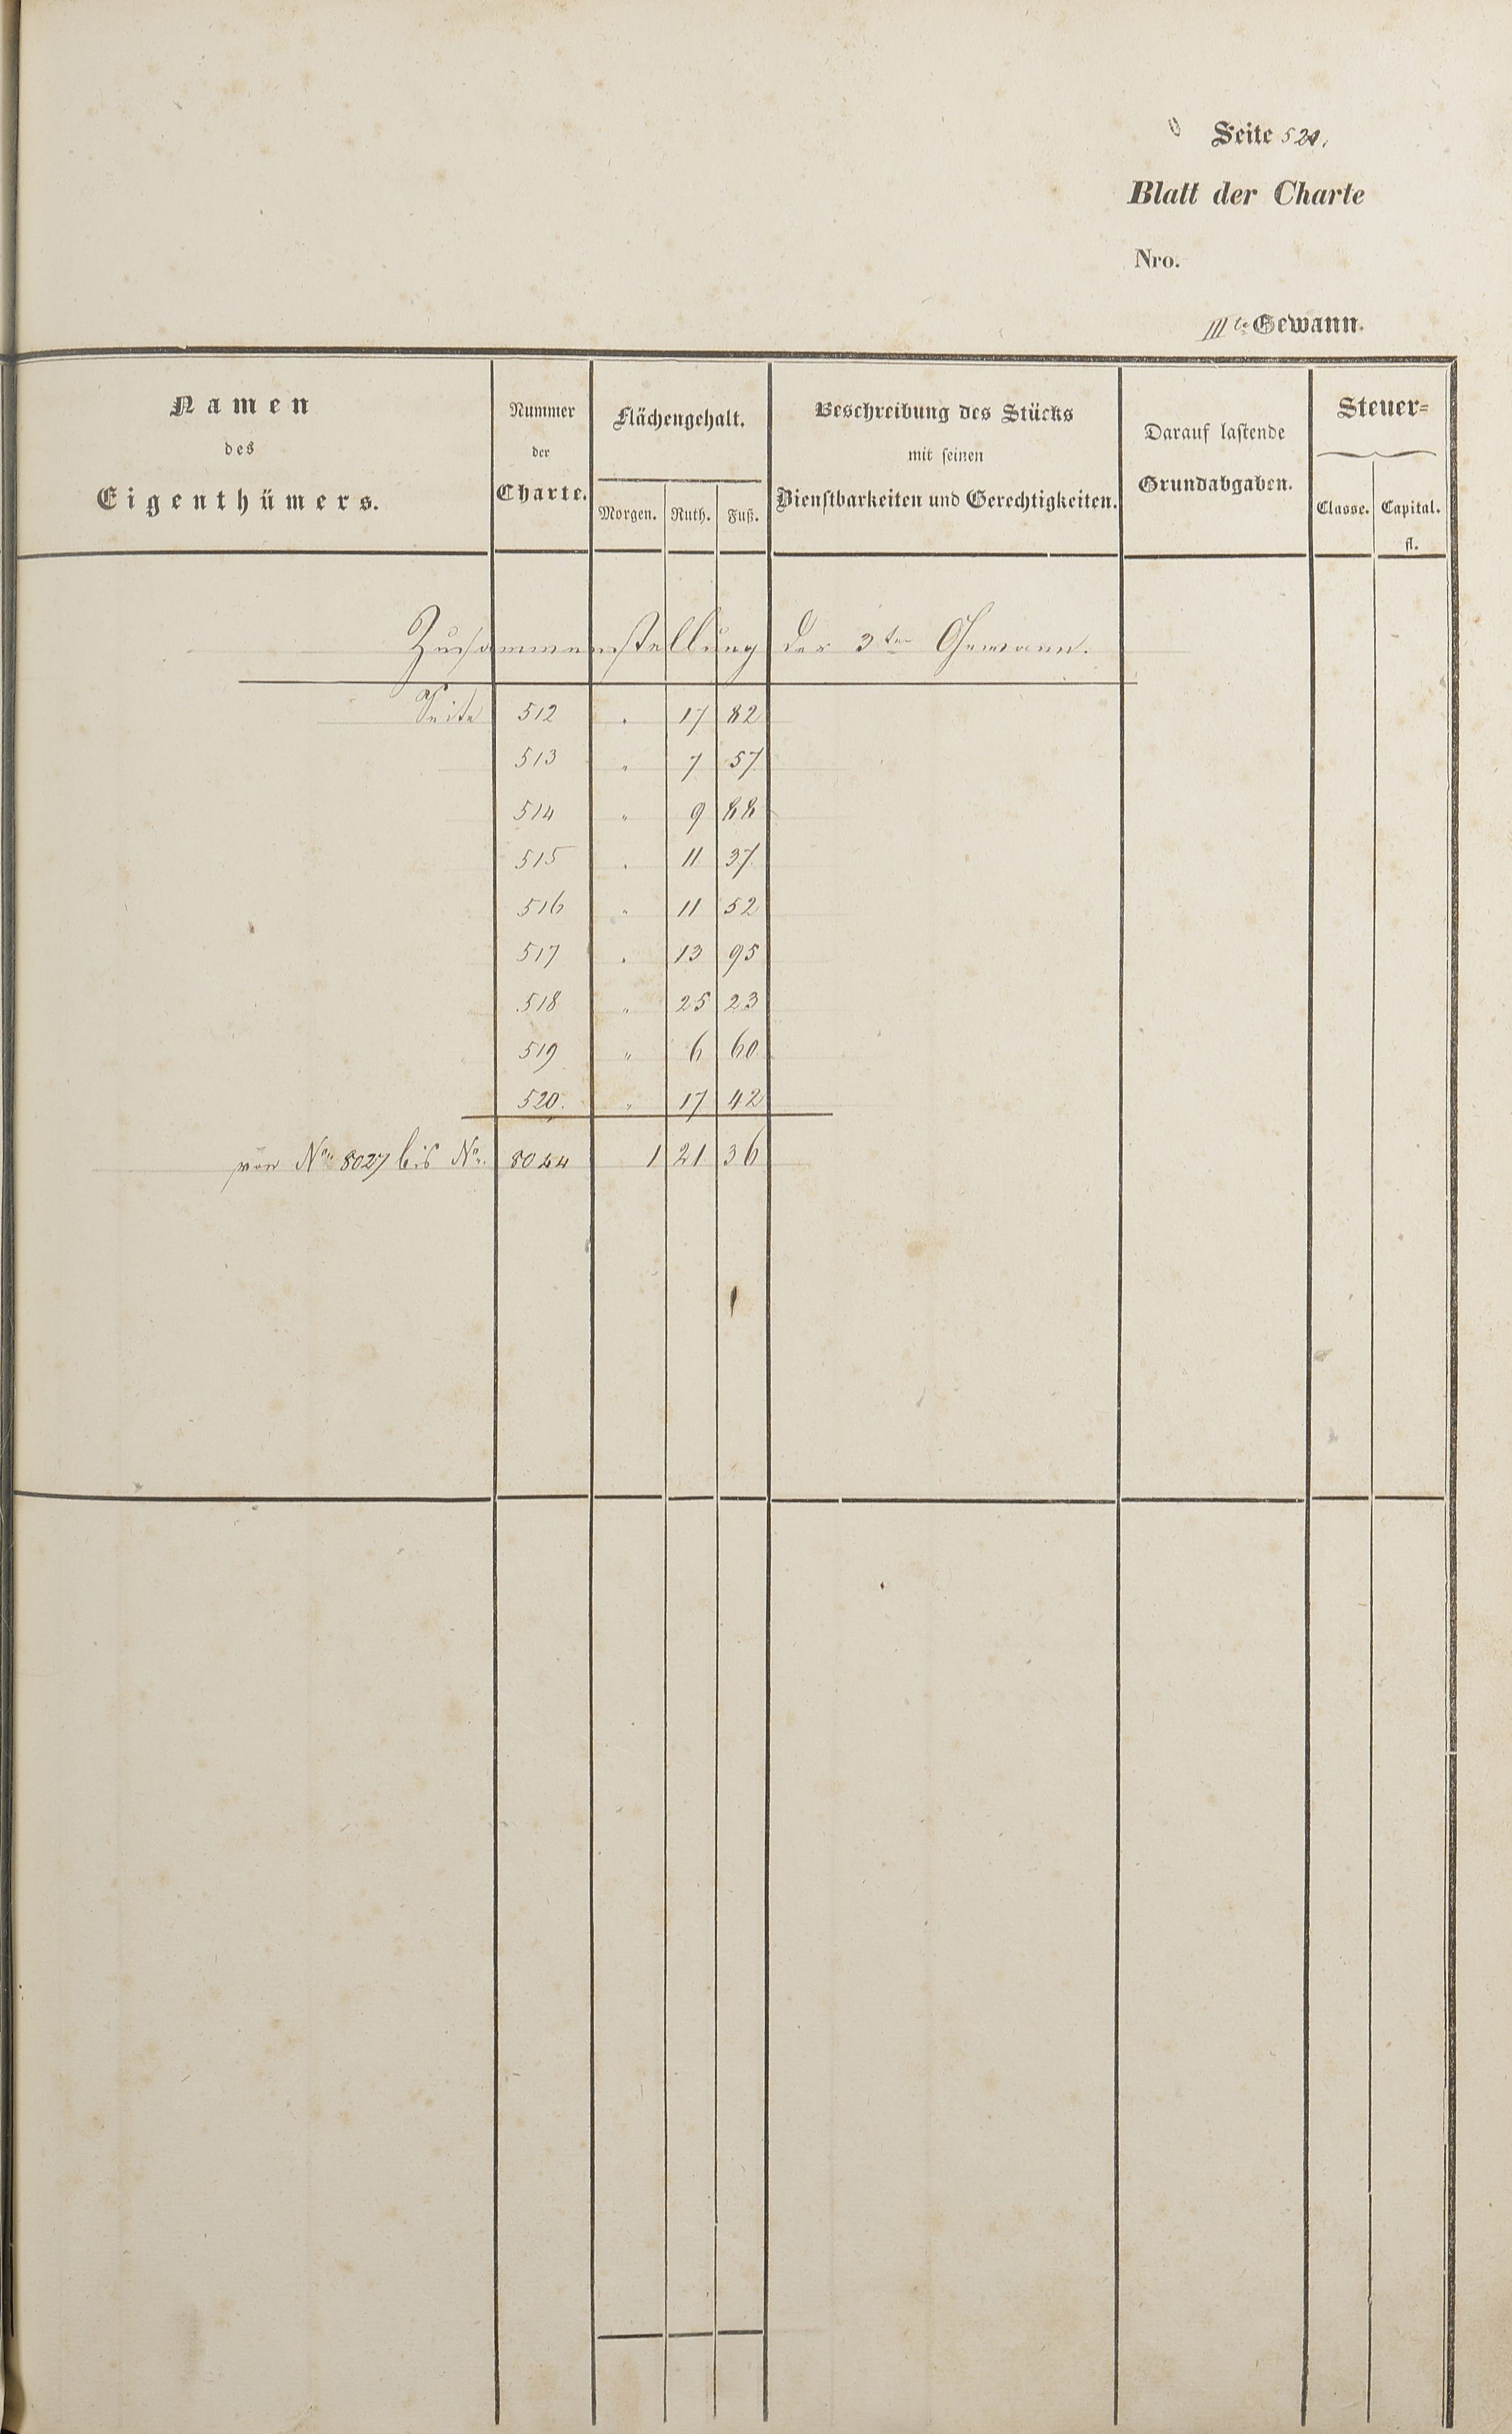 Seite 521.
Blatt der Charte
Nro.
IIIte Gewann.
Namen
des
Eigenthümers.
Nummer
der
Charte.
Flächengehalt.
Morgen. Ruth. Fuß.
Beschreibung des Stücks
mit seinen
Dienstbarkeiten und Gerechtigkeiten.
Darauf lastende
Grundabgaben.
Steuer=
Classe. Capital.
fl.
Zusammenstellung der 3ten Gewann.
Seite 512 . 17 82
513 " 7 57
514 " 9 88
515 . 11 37
516 " 11 52
517 . 13 95
518 " 25 23
519 " 6 60
520. " 17 42
von No. 8027 bis No. 8044 1 21 36